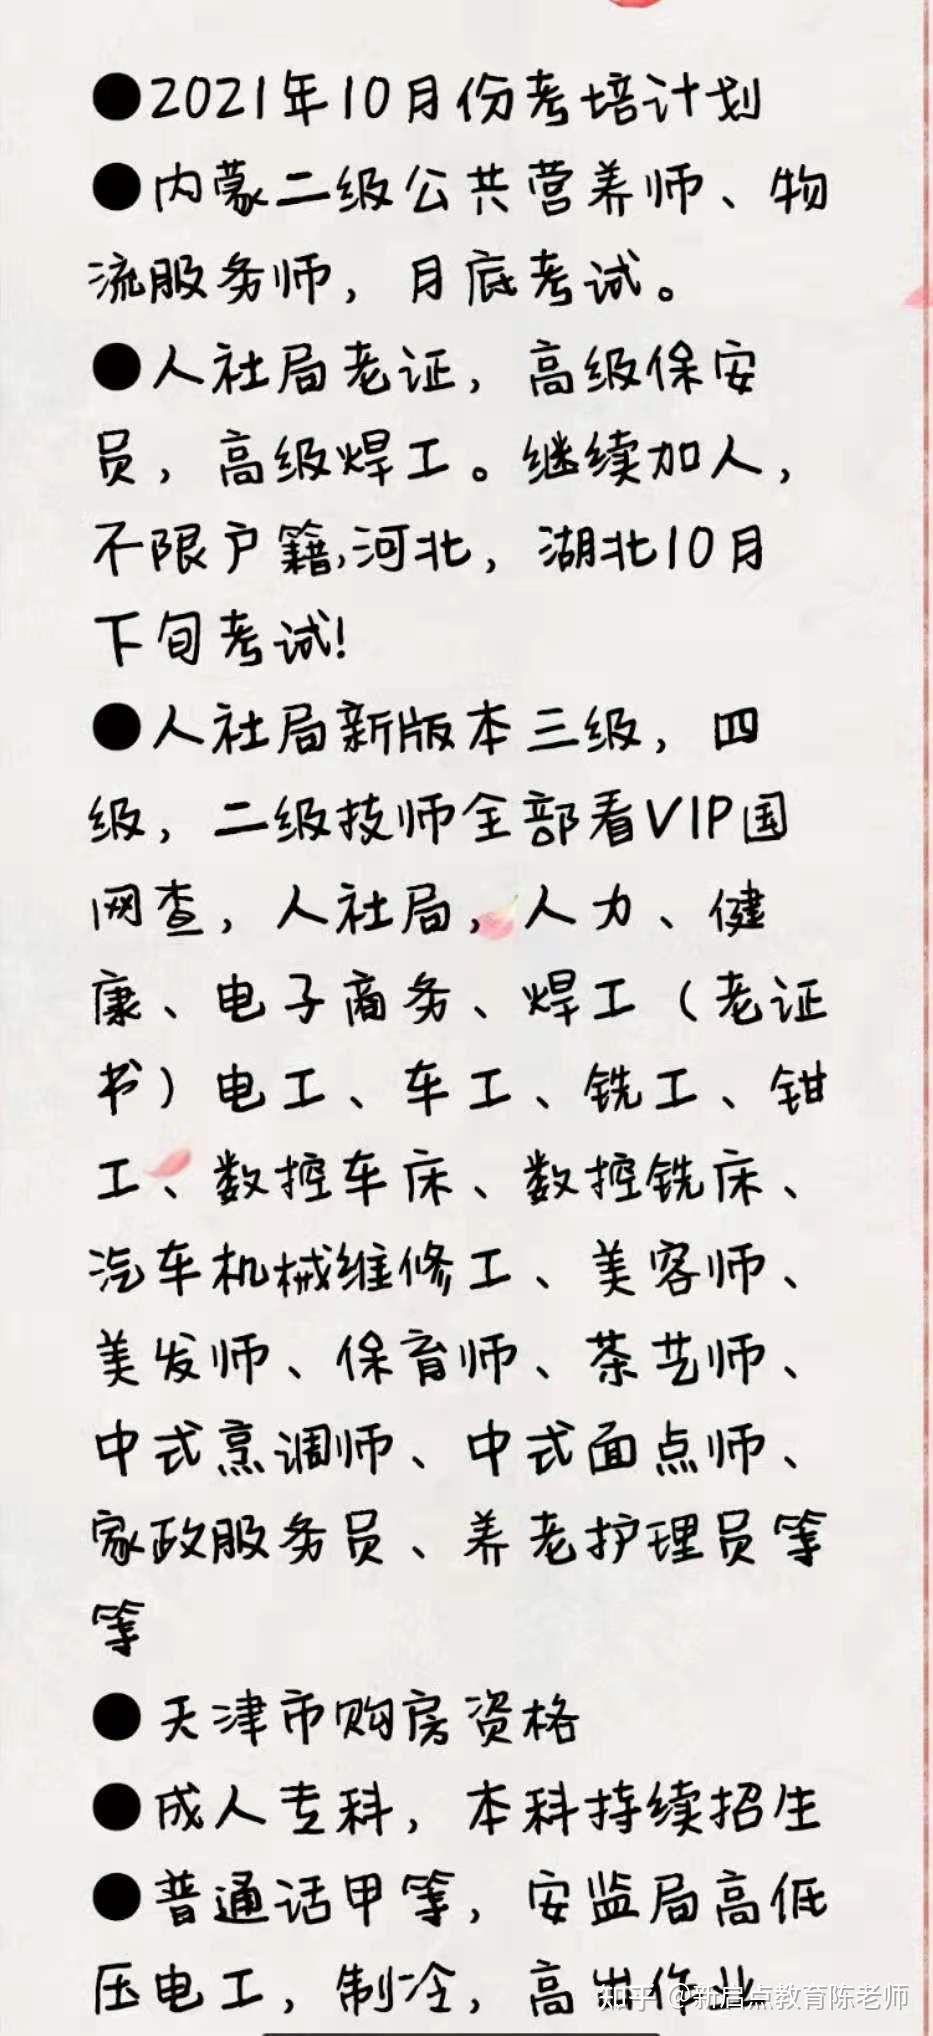 ●2021年10月份考培计划
●内蒙二级公共营养师、物
流服务师，月底考试。
●人社局老证，高级保安
员，高级焊工。继续加人，
不限户籍,河北，湖北10月
下旬考试!
●人社局新版本三级，四
级，二级技师全部看VIP国
网查，人社局，人力、健
康、电子商务、焊工（老证
书）电工、车工、铣工、钳
工、数控车床、数控铣床、
汽车机械维修工、美容师、
美发师、保育师、茶艺师、
中式烹调师、中式面点师、
家政服务员、养老护理员等
等
●天津市购房资格
●成人专科，本科持续招生
●普通话甲等，安监局高低
压电工，制冷，高处作业
知乎 @新启点教育陈老师